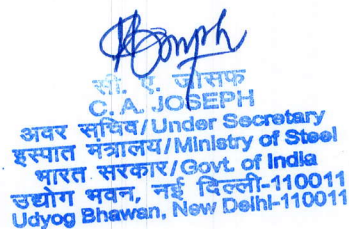 सी. ए. जोसफ
C. A. JOSEPH
अवर सचिव/Under Secretary
इस्पात मंत्रालय/Ministry of Steel
भारत सरकार/Govt. of India
उद्योग भवन, नई दिल्ली-110011
Udyog Bhawan, New Delhi-110011